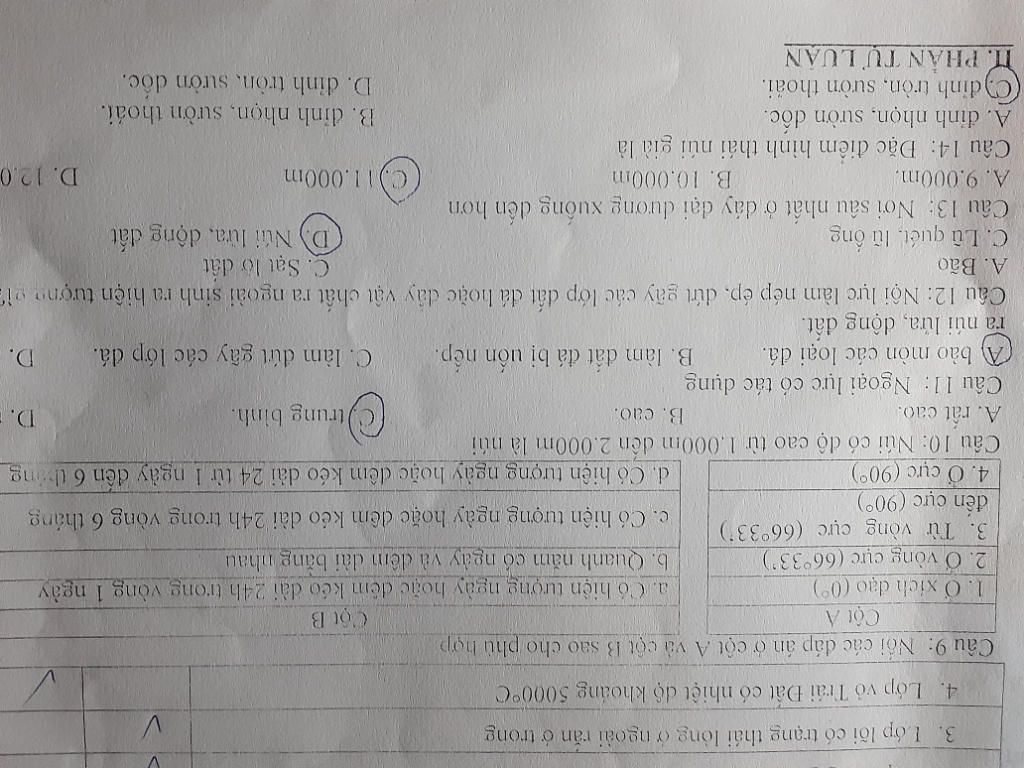 3. Lớp lõi có trạng thái lỏng ở ngoài rắn ở trong
4. Lớp vỏ Trái Đất có nhiệt độ khoảng 5000°C
Câu 9: Nối các đáp án ở cột A và cột B sao cho phù hợp
Cột A
Cột B
1. Ở xích đạo (0°)
a. Có hiện tượng ngày hoặc đêm kéo dài 24h trong vòng 1 ngày
2. Ở vòng cực (66°33')
b. Quanh năm có ngày và đêm dài bằng nhau
3. Từ vòng cực (66°33')
đến cực (90°)
c. Có hiện tượng ngày hoặc đêm kéo dài 24h trong vòng 6 tháng
4. Ở cực (90°)
d. Có hiện tượng ngày hoặc đêm kéo dài 24 từ 1 ngày đến 6 tháng
Câu 10: Núi có độ cao từ 1.000m đến 2.000m là núi
A. rất cao. B. cao. C. trung bình. D.
Câu 11: Ngoại lực có tác dụng
A. bào mòn các loại đá. B. làm đất đá bị uốn nếp. C. làm đứt gãy các lớp đá. D.
ra núi lửa, động đất.
Câu 12: Nội lực làm nép ép, đứt gãy các lớp đất đá hoặc đẩy vật chất ra ngoài sinh ra hiện tượng gì?
A. Bão C. Sạt lở đất
C. Lũ quét, lũ ống D. Núi lửa, động đất
Câu 13: Nơi sâu nhất ở đáy đại dương xuống đến hơn
A. 9.000m. B. 10.000m C. 11.000m D. 12.0
Câu 14: Đặc điểm hình thái núi già là
A. đỉnh nhọn, sườn dốc. B. đỉnh nhọn, sườn thoải.
C. đỉnh tròn, sườn thoải. D. đỉnh tròn, sườn dốc.
II. PHẦN TỰ LUẬN